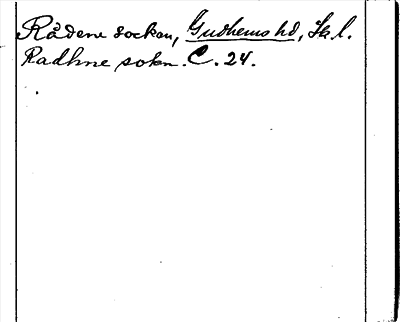 Rådene socken, Gudhems hd, Sk. l.
Radhne sokn. C. 24.